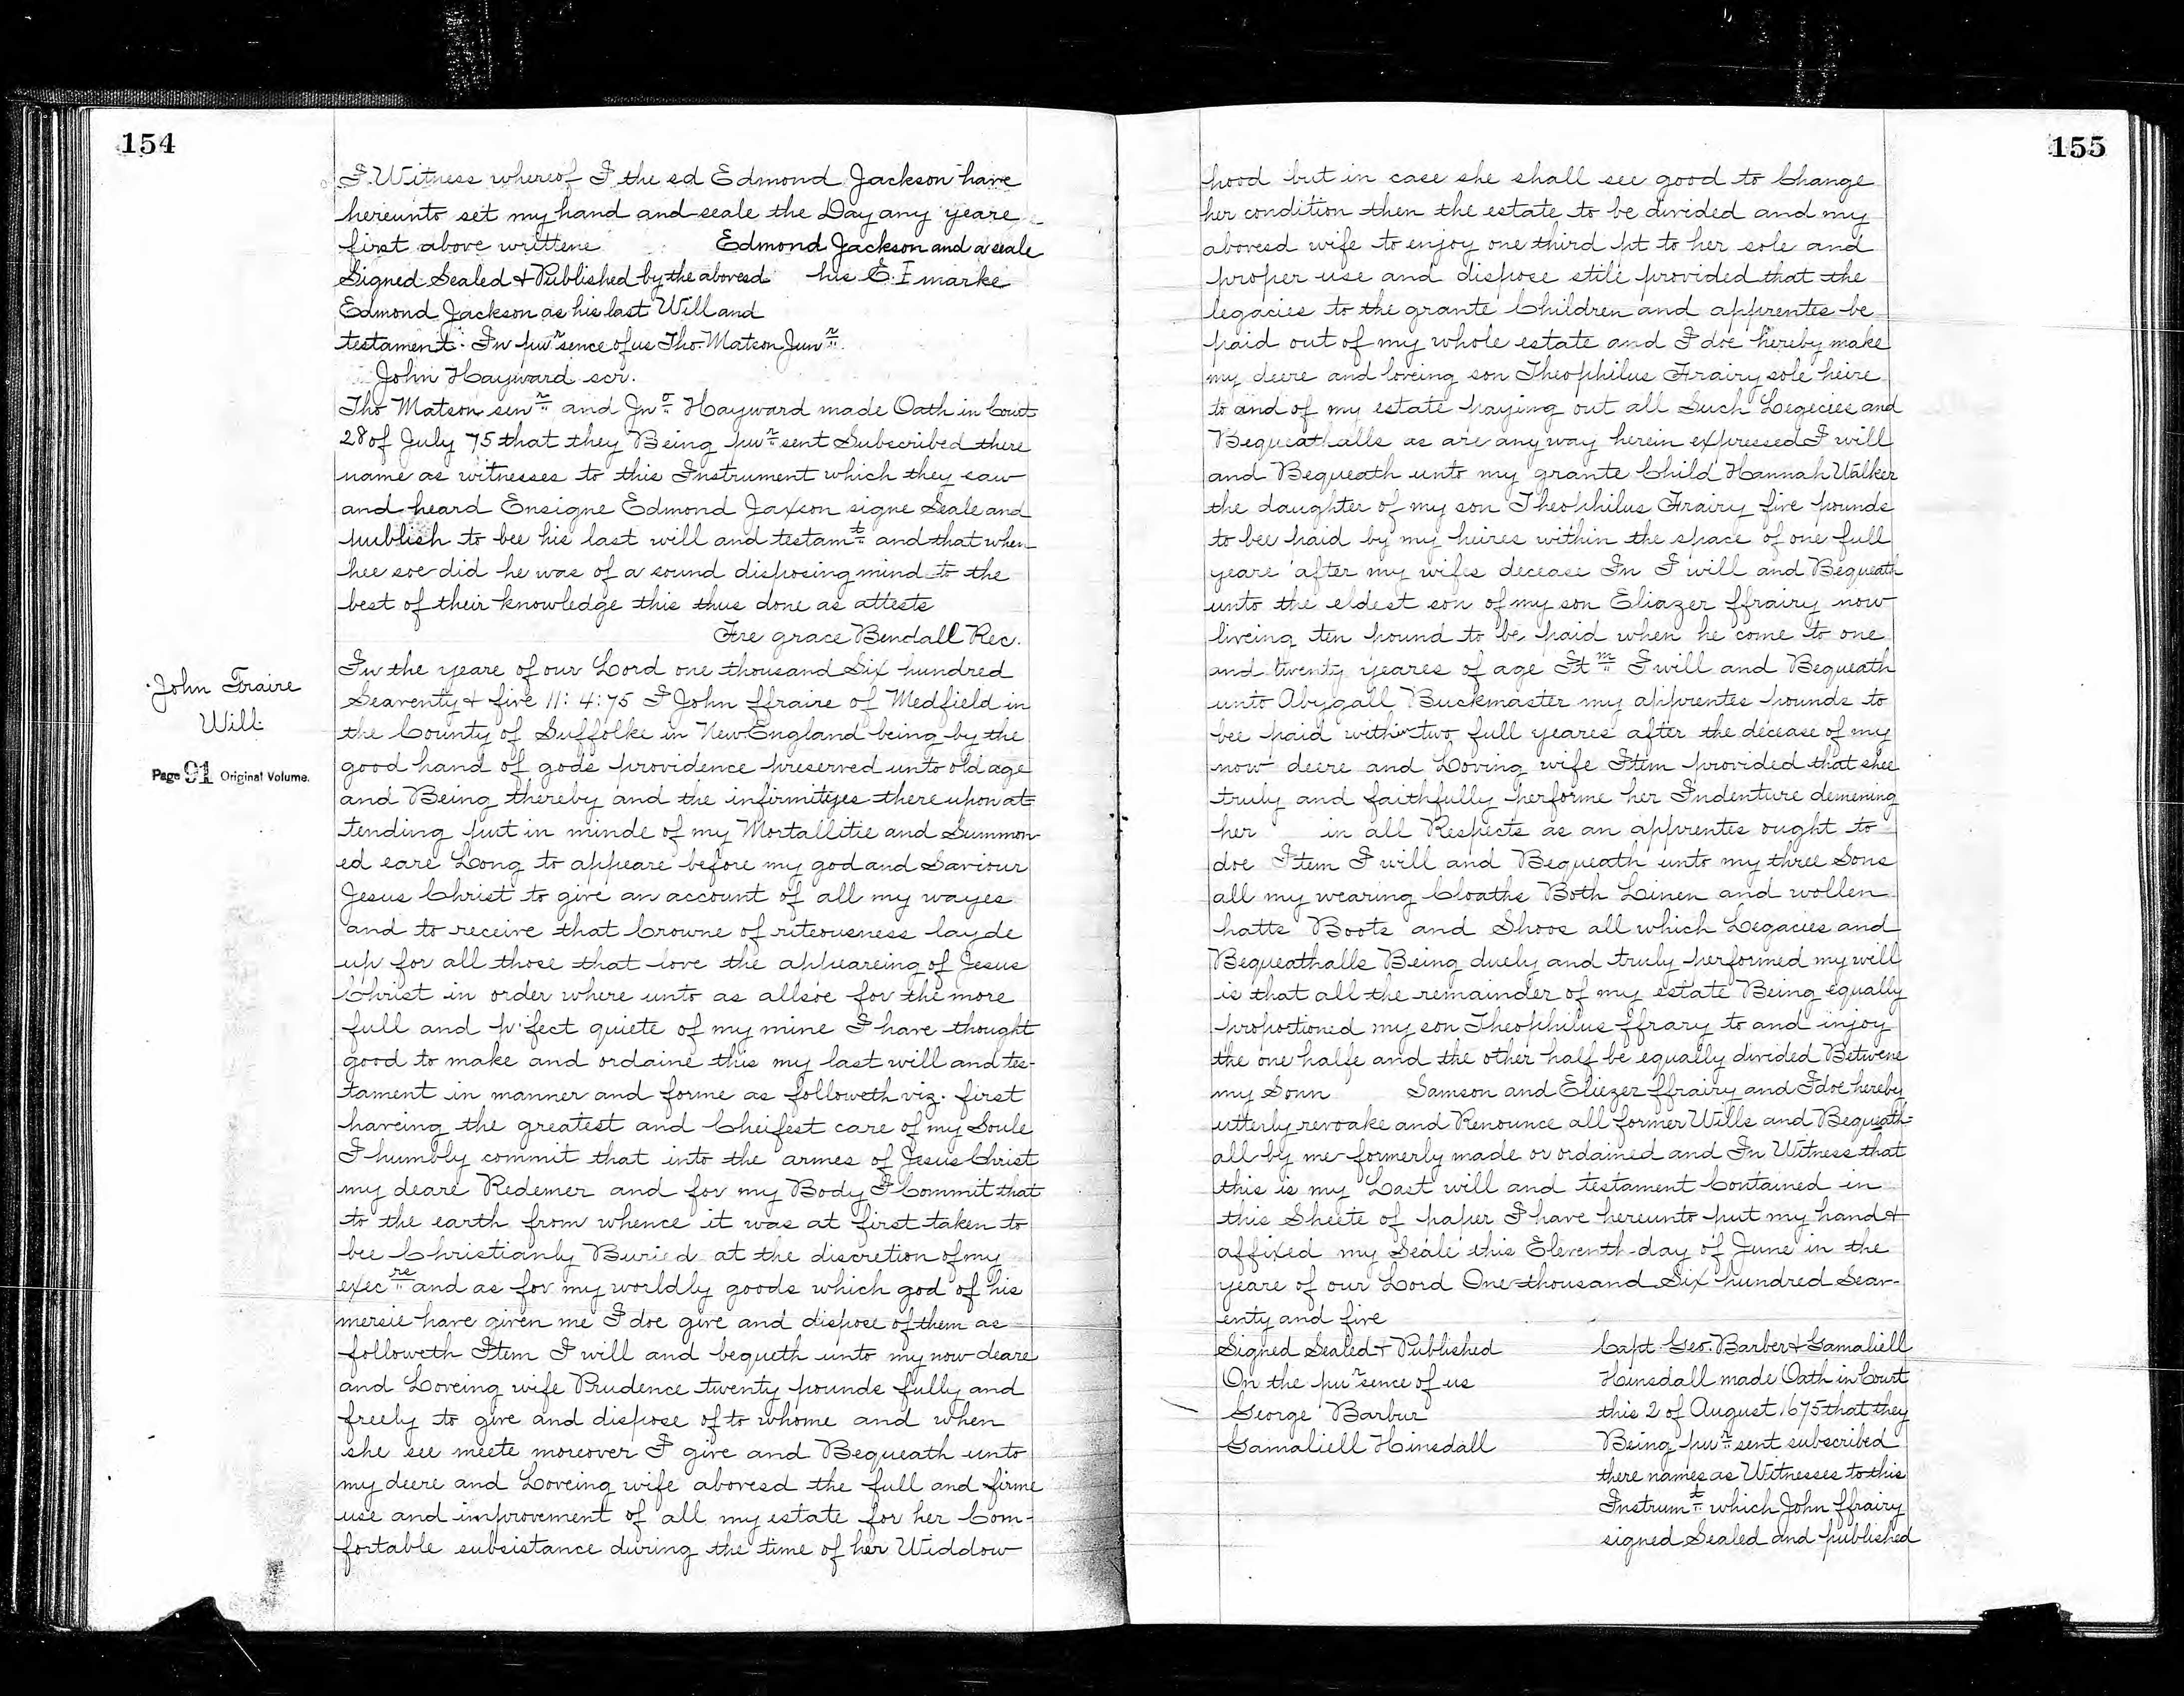 154
I Witness whereof I the sd Edmond Jackson have
hereunto set my hand and seale the Day any yeare
first above writtene Edmond Jackson and a seale
Signed Sealed & Published by the abovesd his E. I marke
Edmond Jackson as his last Will and
testament. In pursence of us Tho. Matson Junr
John Hayward scr.
Tho Matson senr and Jno Hayward made Oath in Court
28 of July 75 that they Being pursent Subscribed there
name as witnesses to this Instrument which they saw
and heard Ensigne Edmond Jaxson signe Seale and
publish to bee his last will and testamt and that when
hee soe did he was of a sound disposing mind to the
best of their knowledge this thus done as attests
Fre grace Bendall Rec.
John Fraire
Will
Page 91 Original Volume.
In the yeare of our Lord one thousand Six hundred
Seaventy & five 11: 4: 75 I John ffraire of Medfield in
the County of Suffolke in New England being by the
good hand of gods providence preserved unto old age
and Being thereby and the infirmityes there upon at=
tending put in minde of my Mortallitie and Summon-
ed eare Long to appeare before my god and Saviour
Jesus Christ to give an account of all my wayes
and to receive that Crowne of riteousness layde
up for all those that love the appeareing of Jesus
Christ in order where unto as allsoe for the more
full and p'fect quiete of my mine I have thought
good to make and ordaine this my last will and tes-
tament in manner and forme as followeth viz. first
haveing the greatest and Cheifest care of my Soule
I humbly commit that into the armes of Jesus Christ
my deare Redemer and for my Body I Commit that
to the earth from whence it was at first taken to
bee Christianly Buried at the discretion of my
execre and as for my worldly goods which god of his
mersie have given me I doe give and dispose of them as
followeth Item I will and bequeth unto my now deare
and Loveing wife Prudence twenty pounds fully and
freely to give and dispose of to whome and when
she see meete moreover I give and Bequeath unto
my deere and Loveing wife abovesd the full and firme
use and improvement of all my estate for her Com-
fortable subsistance during the time of her Widdow
155
hood but in case she shall see good to Change
her condition then the estate to be divided and my
abovesd wife to enjoy one third pt to her sole and
proper use and dispose still provided that the
legacies to the grante Children and apprentes be
paid out of my whole estate and I doe hereby make
my deere and loveing son Theophilus Frairy sole heire
to and of my estate paying out all Such Legecies and
Bequeathalls as are any way herein expressed I will
and Bequeath unto my grante Child Hannah Walker
the daughter of my son Theophilus Frairy five pounds
to bee paid by my heires within the space of one full
yeare after my wifes decease In I will and Bequeath
unto the eldest son of my son Eliazer ffrairy now
liveing ten pound to be paid when he come to one
and twenty yeares of age Itm I will and Bequeath
unto Abygall Buckmaster my apprentes pounds to
bee paid within two full yeares after the decease of my
now deere and Loving wife Item provided that shee
truly and faithfully performe her Indenture demening
her in all Respects as an apprentes ought to
doe Item I will and Bequeath unto my three Sons
all my wearing Cloaths Both Linen and wollen
hatts Boots and Shoos all which Legacies and
Bequeathalls Being duely and truly performed my will
is that all the remainder of my estate Being equally
proportioned my son Theophilus ffrary to and injoy
the one halfe and the other half be equally divided Betwene
my Sonn Samson and Eliezer ffrairy and I doe hereby
utterly revoake and Renounce all former Wills and Bequeath-
all by me formerly made or ordained and In Witness that
this is my Last will and testament Contained in
this Sheete of paper I have hereunto put my hand &
affixed my Seale this Eleventh day of June in the
yeare of our Lord One thousand Six hundred Seav-
enty and five
Signed Sealed & Published
On the pursence of us
George Barbur
Gamaliell Hinsdall
Capt. Geo. Barber & Gamaliell
Hinsdall made Oath in Court
this 2 of August 1675 that they
Being pursent subscribed
there names as Witnesses to this
Instrumt which John ffrairy
signed Sealed and published